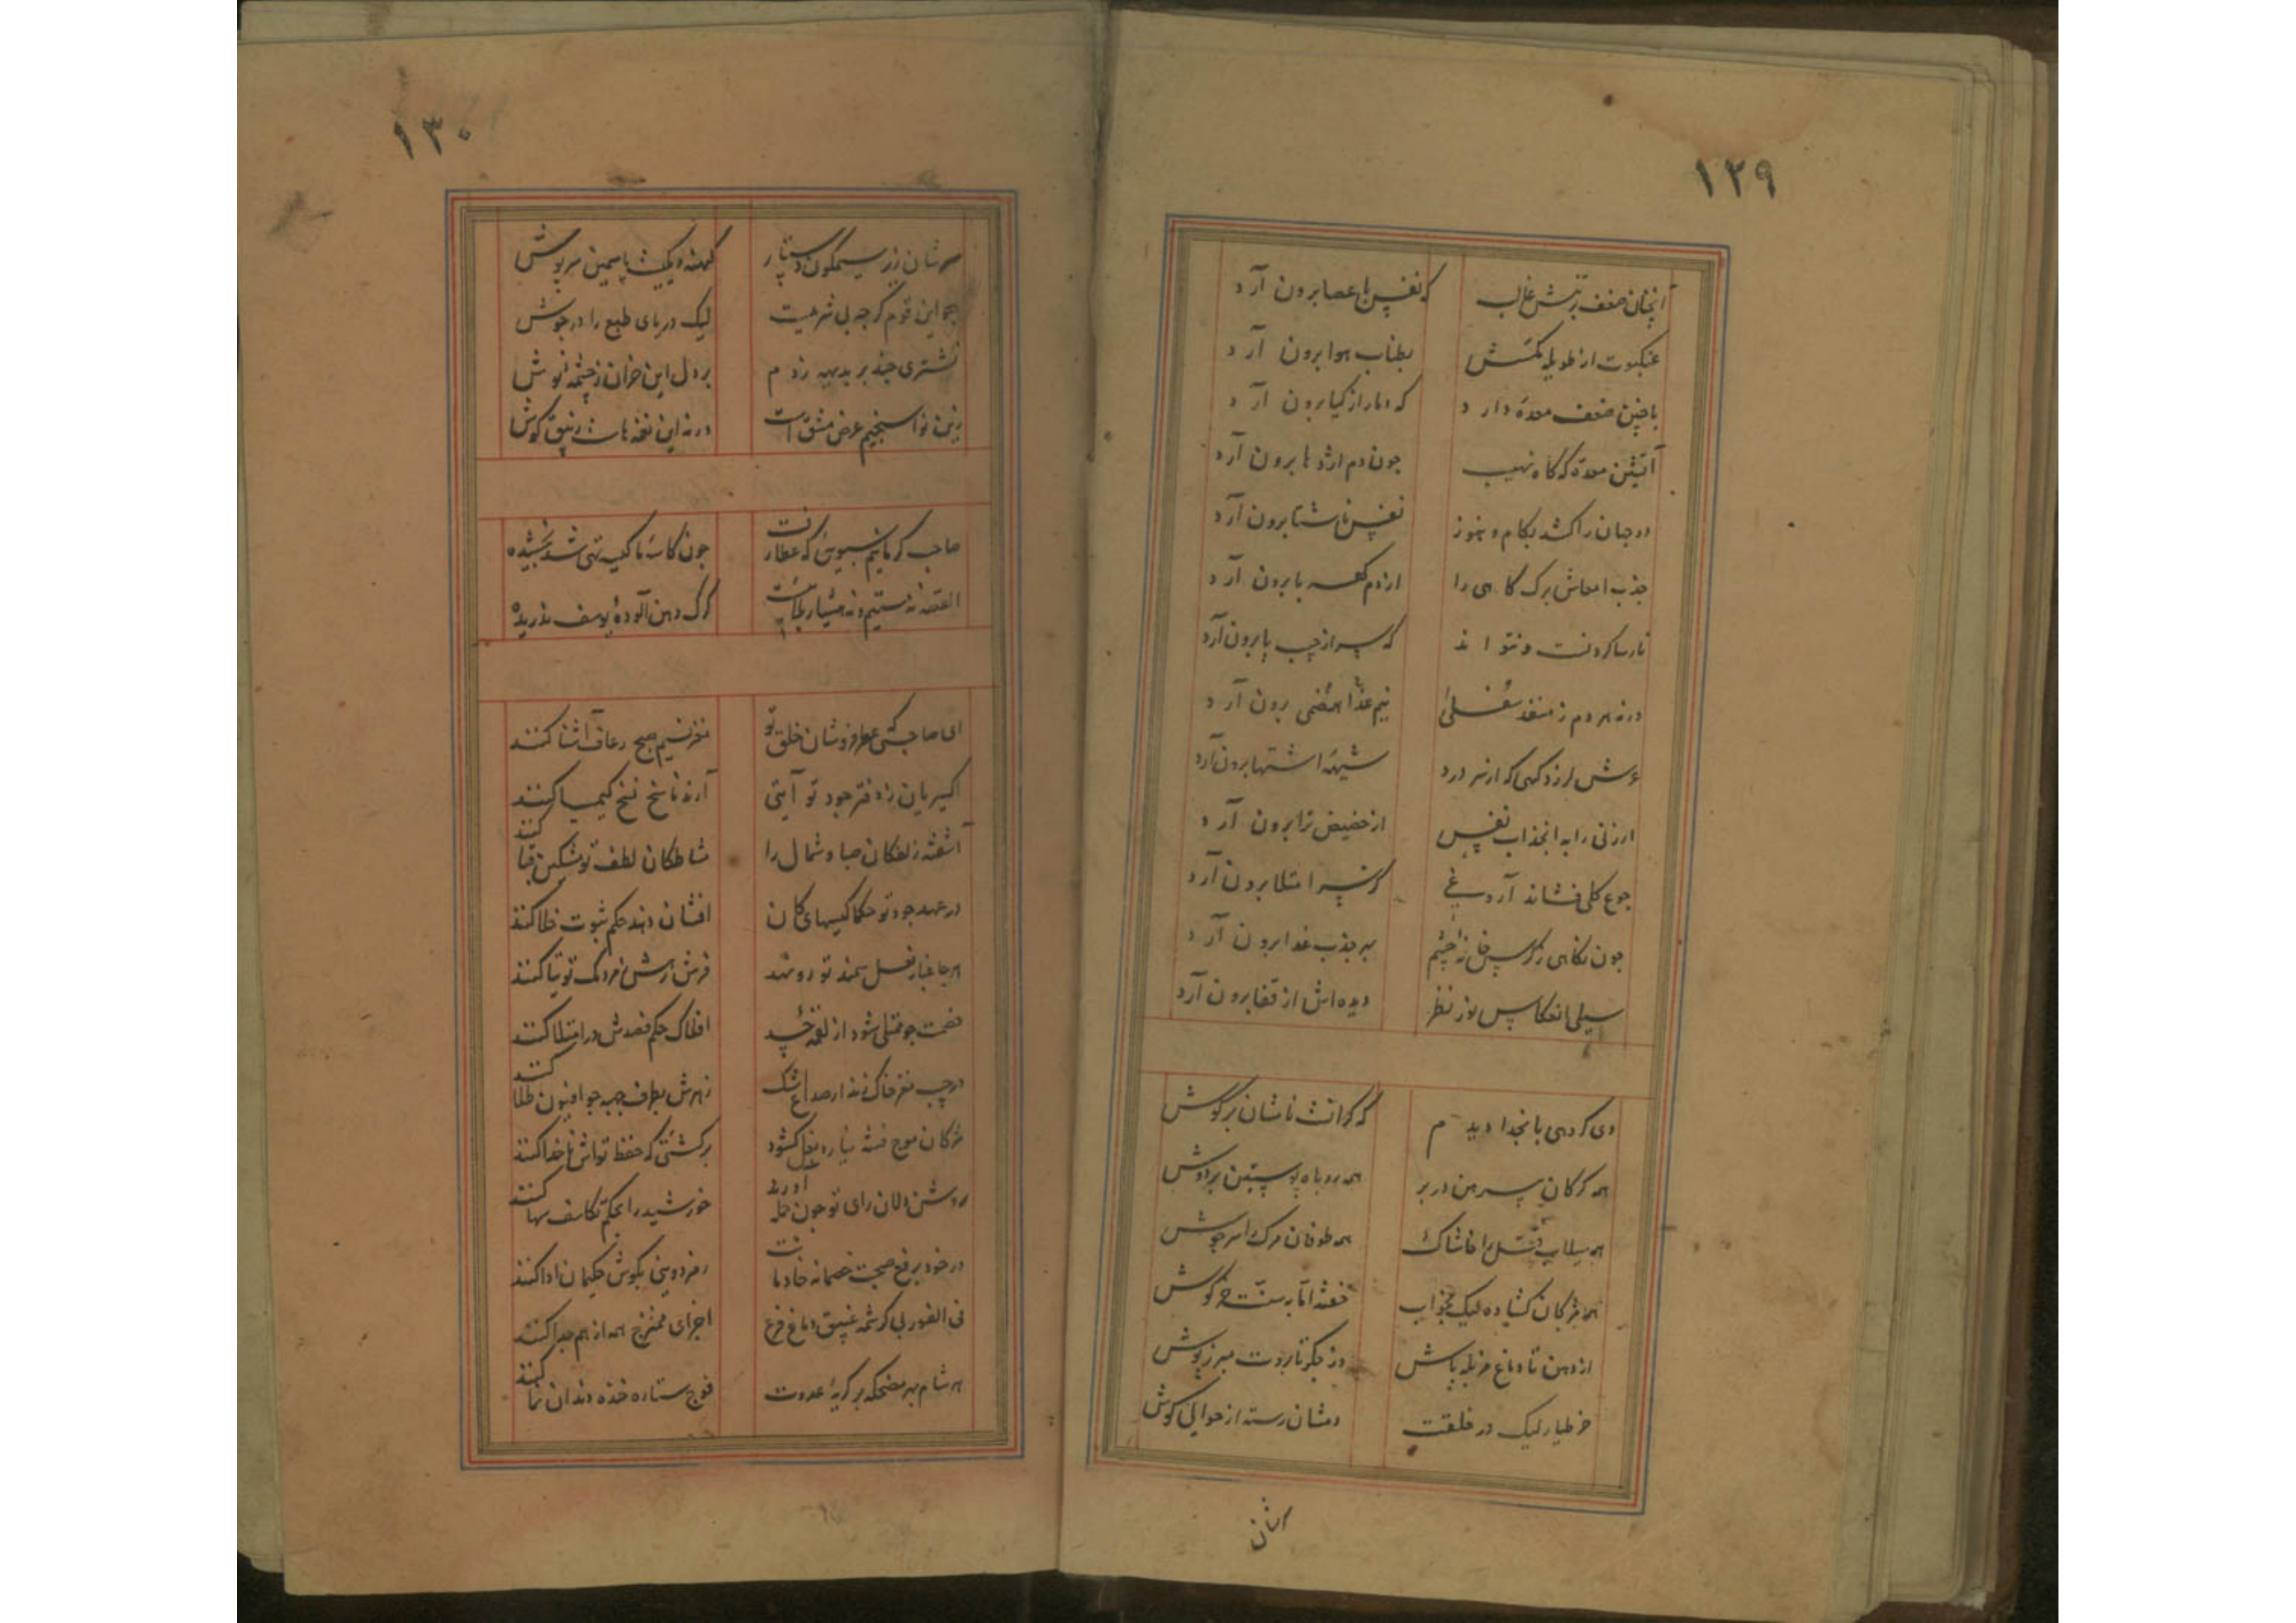 ١٢٩
آنچنان ضعف بر تنش غالب
که نفس با عصا برون آرد
عنکبوت از طویله مگسش
بطناب هوا برون آرد
با چنین ضعف معدهٔ دارد
که دمار از گیا برون آرد
آتشین معدهٔ که گاه نهیب
چون دم اژدها برون آرد
دو جهان را کشد بکام و هنوز
نفس ناشتا برون آرد
جذب امعاش برگ کاهی را
از دم کهربا برون آرد
نارسا کردنست و نتواند
که سر از جیب پا برون آرد
ورنه هر دم ز منفذ سفلی
نیم غذا هضمی برون آرد
عرش لرزد گهی که از سر درد
شیههٔ اشتها برون آرد
ارزنی را به انجذاب نفس
از حضیض ثرا برون آرد
جوع کلی فشاند آروغی
کز سر امتلا برون آرد
چون نگاهی ز نرگس چشم
بهر جذب غذا برون آرد
سیلی انعکاس نور نظر
دیده‌اش از قفا برون آرد
دی گروهی با نجدا دیدم
که گرانست ناشان بر گوش
همه گرگان پیرهن در بر
همه روباه پوستین بر دوش
همه سیلاب فتنه را خاشاک
همه طوفان مرگ را سرجوش
همه مژگان گشاده لیک بخواب
خفته اما به سنت خرگوش
از دهن تا دماغ مزبله پاش
وز جگر تا بروت مبرز پوش
خر طیار لیک در خلقت
دمشان رسته از حوالی گوش
١٣٠
سرشان زیر سیمگون دستار
هجو این قوم گرچه بی شرمیست
لیک دریای طبع را در جوش
نشتری چند بر بدیهه زدم
بر دل این خران ز چشمه نوش
زین نوا سنجیم غرض مشق است
ورنه این نغمه هاست زینق گوش
صاحب کرمانیم سبویش که عطار
چون کاسهٔ ما کیسه تهی شد
القصه نه مستیم و نه هشیار
گرگ دهن آلودهٔ یوسف ندریده
ای صاحبی که عطر فروشان خلق تو
مغز نسیم صبح رعاف آشنا کنند
اکسیریان ز دفتر جود تو آیتی
آرند ناسخ نسخ کیمیا کنند
آشفته زلفکان صبا و شمال را
مشاطگان لطف تو مشکین قبا کنند
در عهد جود تو حکما کیسهای کان
افشان دهند حکم ثبوت خلا کنند
هر جا غبار نعل سمند تو روشند
فرش رهش مردمک توتیا کنند
خصمت چو ممتلی شود از لقمهٔ حسد
افلاک حکم فصدش در امتلا کنند
زهرش بطرف جبهه چو افیون طلا کنند
مژگان موج فتنه نیارد بغل گشود
بر کشتئی که حفظ تواش ناخدا کنند
روشندلان رای تو چون حمله آورند
خورشید را بحکم تکاسف سها کنند
رمز دویی بگوش حکیمان ادا کنند
فی الفور بی کرشمه غنیق دماغ قرع
اجزای ممتزج همه از هم جدا کنند
هر شام بهر مضحکه بر گریهٔ عدوت
فوج ستاره خنده دندان نما کنند